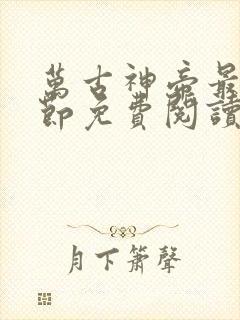 萬古神帝最
節免費閱讀
月下簫聲